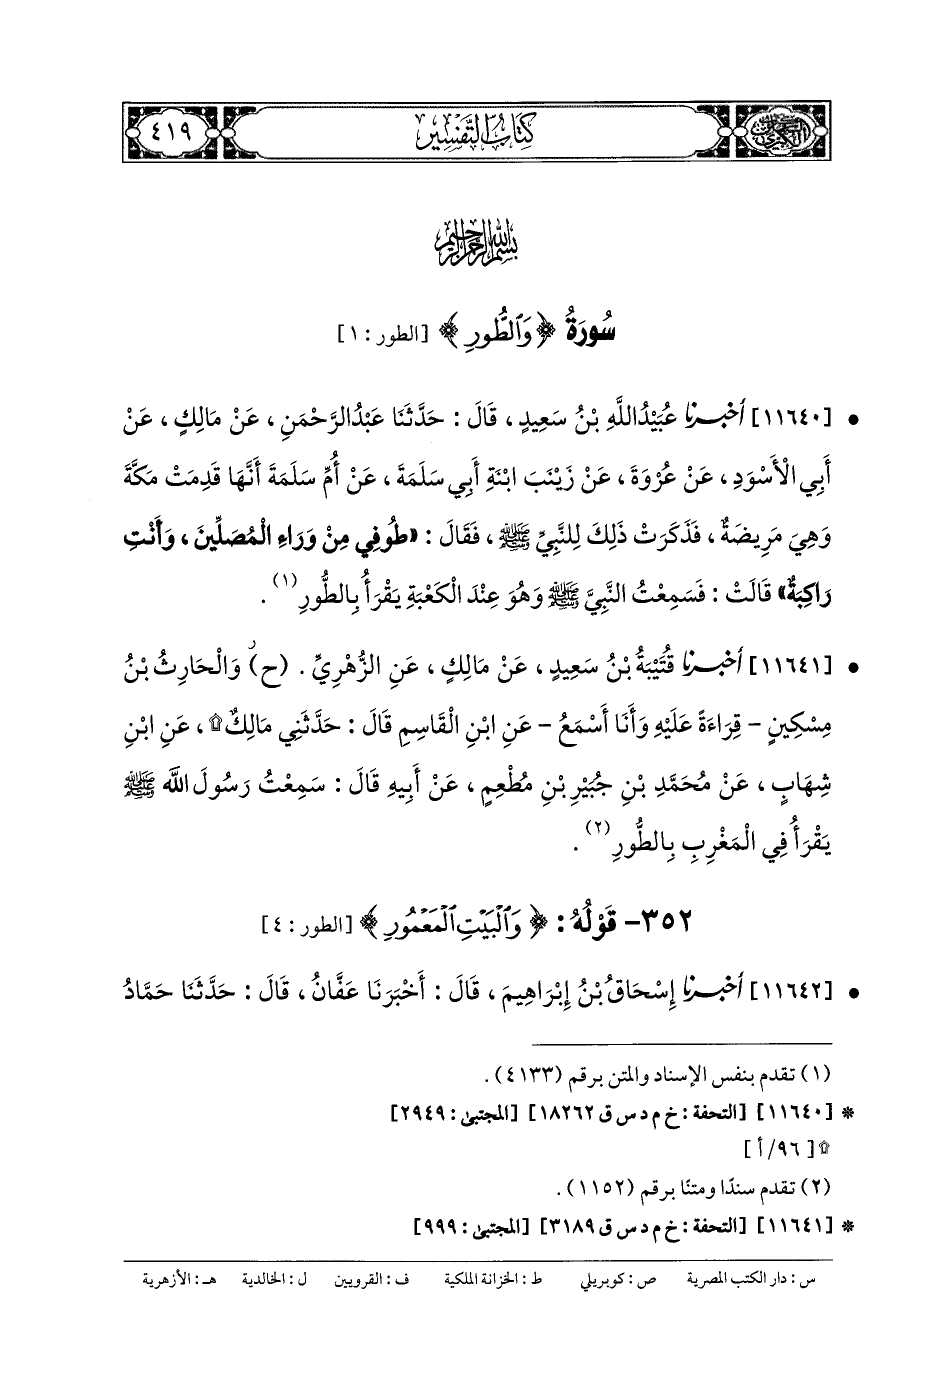 كتاب التفسير
٤١٩
بسم الله الرحمن الرحيم
سُورَةُ ﴿وَالطُّورِ﴾ [الطور : ١]
• [١١٦٤٠] أخبرنا عُبَيْدُاللَّهِ بْنُ سَعِيدٍ ، قَالَ : حَدَّثَنَا عَبْدُالرَّحْمَنِ ، عَنْ مَالِكٍ ، عَنْ
أَبِي الْأَسْوَدِ ، عَنْ عُرْوَةَ ، عَنْ زَيْنَبَ ابْنَةِ أَبِي سَلَمَةَ ، عَنْ أُمِّ سَلَمَةَ أَنَّهَا قَدِمَتْ مَكَّةَ
وَهِيَ مَرِيضَةٌ ، فَذَكَرَتْ ذَلِكَ لِلنَّبِيِّ ﷺ ، فَقَالَ : «طُوفِي مِنْ وَرَاءِ الْمُصَلِّينَ ، وَأَنْتِ
رَاكِبَةٌ» قَالَتْ : فَسَمِعْتُ النَّبِيَّ ﷺ وَهُوَ عِنْدَ الْكَعْبَةِ يَقْرَأُ بِالطُّورِ (١) .
• [١١٦٤١] أخبرنا قُتَيْبَةُ بْنُ سَعِيدٍ ، عَنْ مَالِكٍ ، عَنِ الزُّهْرِيِّ . (ح) وَالْحَارِثُ بْنُ
مِسْكِينٍ - قِرَاءَةً عَلَيْهِ وَأَنَا أَسْمَعُ - عَنِ ابْنِ الْقَاسِمِ قَالَ : حَدَّثَنِي مَالِكٌ۩ ، عَنِ ابْنِ
شِهَابٍ ، عَنْ مُحَمَّدِ بْنِ جُبَيْرِ بْنِ مُطْعِمٍ ، عَنْ أَبِيهِ قَالَ : سَمِعْتُ رَسُولَ اللَّهِ ﷺ
يَقْرَأُ فِي الْمَغْرِبِ بِالطُّورِ (٢) .
٣٥٢- قَوْلُهُ : ﴿وَالْبَيْتِ الْمَعْمُورِ﴾ [الطور : ٤]
• [١١٦٤٢] أخبرنا إِسْحَاقُ بْنُ إِبْرَاهِيمَ ، قَالَ : أَخْبَرَنَا عَفَّانُ ، قَالَ : حَدَّثَنَا حَمَّادُ
(١) تقدم بنفس الإسناد والمتن برقم (٤١٣٣) .
* [١١٦٤٠] [التحفة : خ م د س ق ١٨٢٦٢] [المجتبى : ٢٩٤٩]
۩ [٩٦/أ]
(٢) تقدم سندًا ومتنًا برقم (١١٥٢) .
* [١١٦٤١] [التحفة : خ م د س ق ٣١٨٩] [المجتبى : ٩٩٩]
س : دار الكتب المصرية ص : كوبريلي ط : الخزانة الملكية ف : القرويين ل : الخالدية هـ : الأزهرية